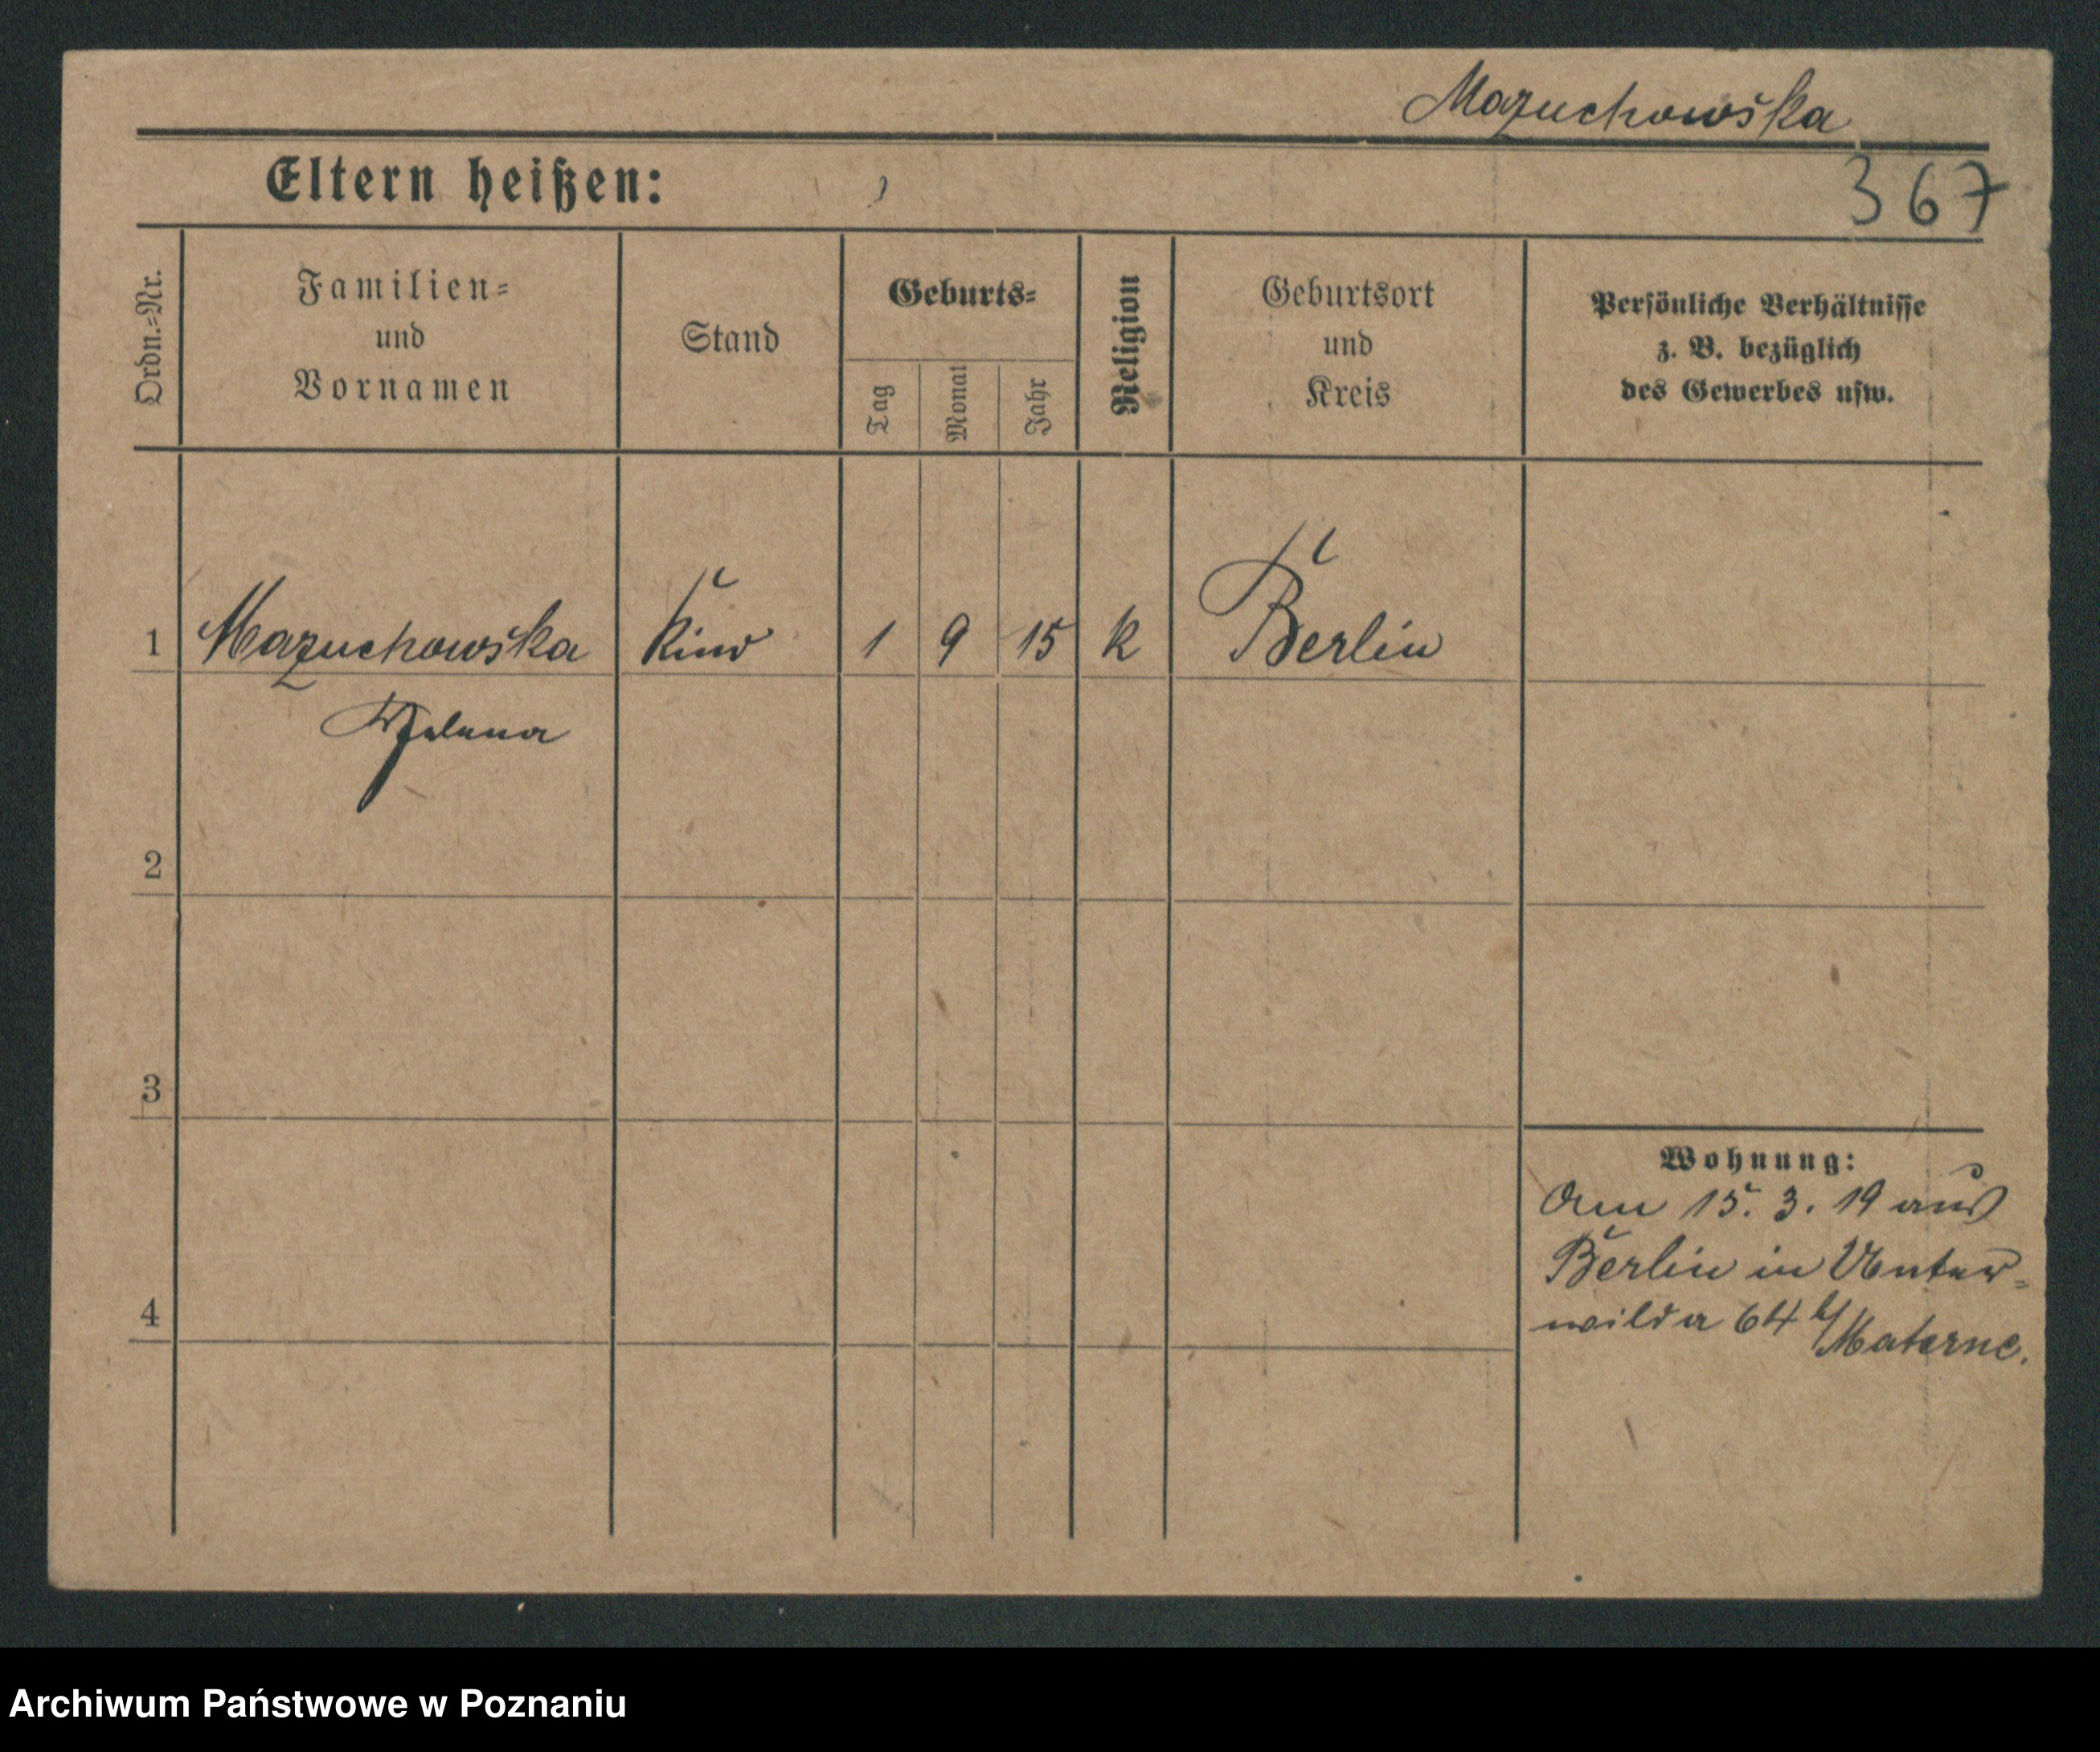 Mazuchowska
367
Eltern heißen:
Ordn.=Nr.
Familien=
und
Vornamen
Stand
Geburts=
Tag
Monat
Jahr
Religion
Geburtsort
und
Kreis
Persönliche Verhältnisse
z. B. bezüglich
des Gewerbes usw.
1 Mazuchowska Kind 1 9 15 k Berlin
Helena
2
3
4
Wohnung:
Am 15. 3. 19 aus
Berlin in Unter=
wilda 64 b/
Materne.
Archiwum Państwowe w Poznaniu